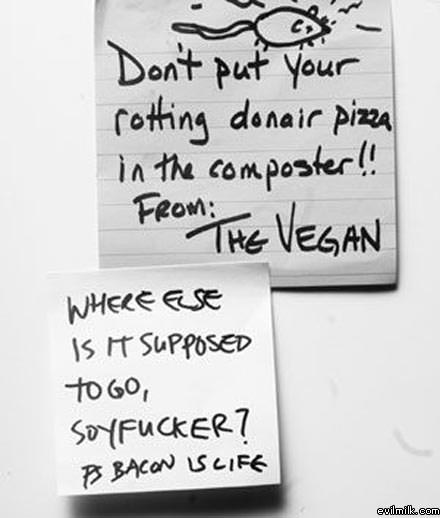 Don't put your
rotting donair pizza
in the composter!!
FROM:
THE VEGAN
WHERE ELSE
IS IT SUPPOSED
TO GO,
SOYFUCKER?
PS BACON IS LIFE
evilmilk.com